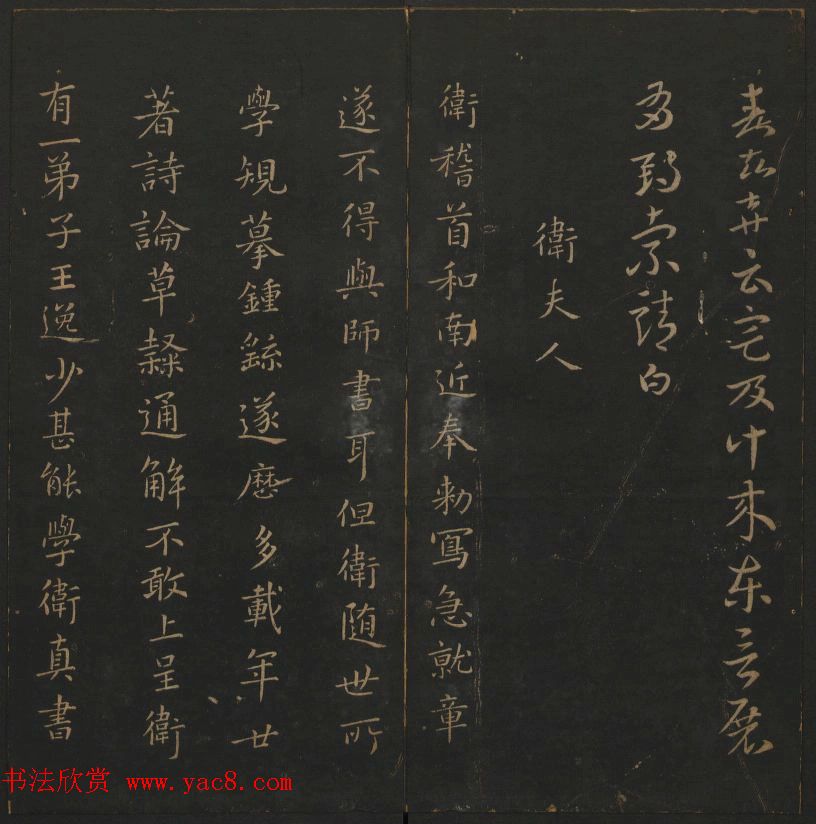 云宅及計來東言展
索靖白
衛夫人
衛稽首和南近奉勅寫急就章
遂不得與師書耳但衛随世所
學規摹鍾繇遂歷多載年廿
著詩論草隸通解不敢上呈衛
有一弟子王逸少甚能學衛真書
书法欣赏 www.yac8.com